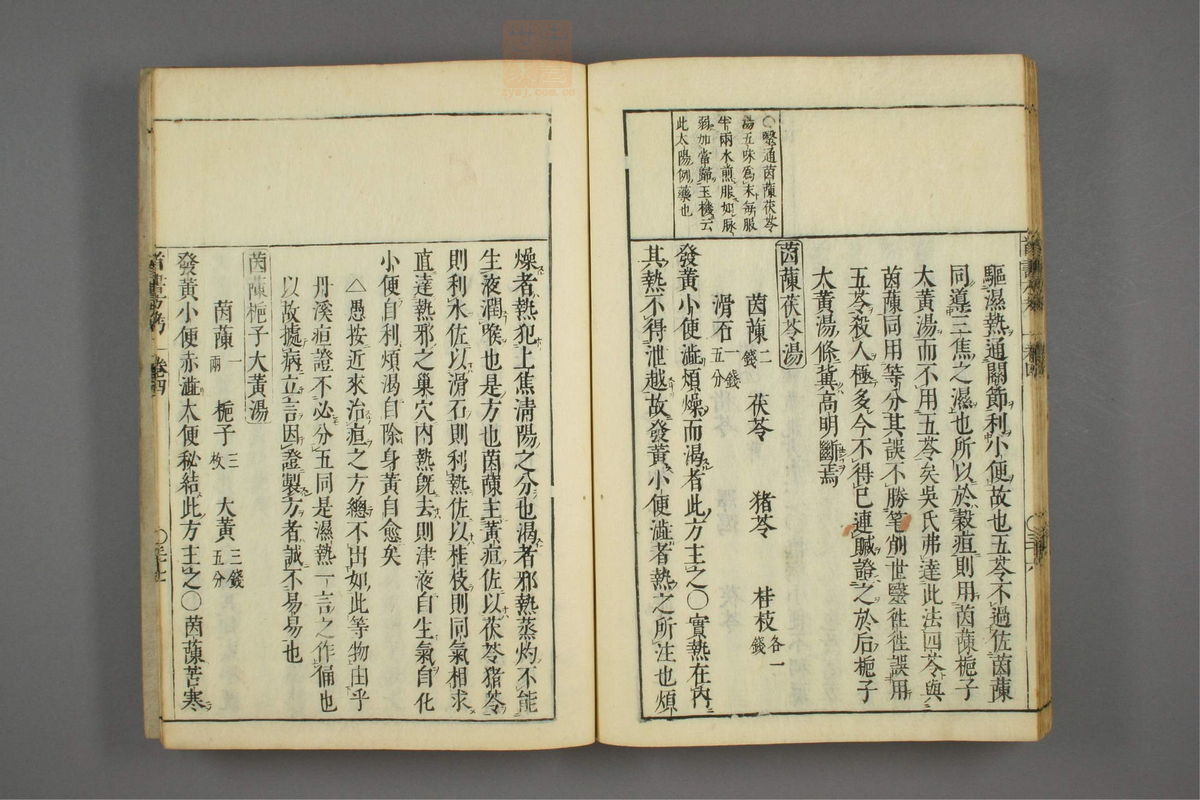 〇醫通茵蔯茯苓
湯五味爲末每服
半兩水煎服如脉
弱加當歸玉機云
此太陽例藥也
驅濕熱通關節利小便故也五苓不過佐茵蔯
同導三焦之濕也所以於穀疸則用茵蔯梔子
大黃湯而不用五苓矣吳氏弗達此法四苓與
茵蔯同用等分其誤不勝筆削世醫徃徃誤用
五苓殺人極多今不得已連贓證之於后梔子
太黃湯條冀高明斷焉
茵蔯茯苓湯
茵蔯二錢 茯苓 猪苓 桂枝各一錢
滑石一錢五分
發黃小便澁煩燥而渴者此方主之〇實熱在內
其熱不得泄越故發黃小便澁者熱之所注也煩
燥者熱犯上焦淸陽之分也渴者邪熱蒸灼不能
生液潤喉也是方也茵蔯主黃疸佐以茯苓猪苓
則利水佐以滑石則利熱佐以桂枝則同氣相求
直達熱邪之巢穴內熱旣去則津液自生氣自化
小便自利煩渴自除身黃自愈矣
△愚按近來治疸之方總不出如此等物由乎
丹溪疸證不必分五同是濕熱一言之作俑也
以故據病立言因證製方者誠不易易也
茵蔯梔子大黃湯
茵蔯一兩 梔子三枚 大黃三錢五分
發黃小便赤澁大便秘結此方主之〇茵蔯苦寒
卷四
〇三十七
zysj.com.cn